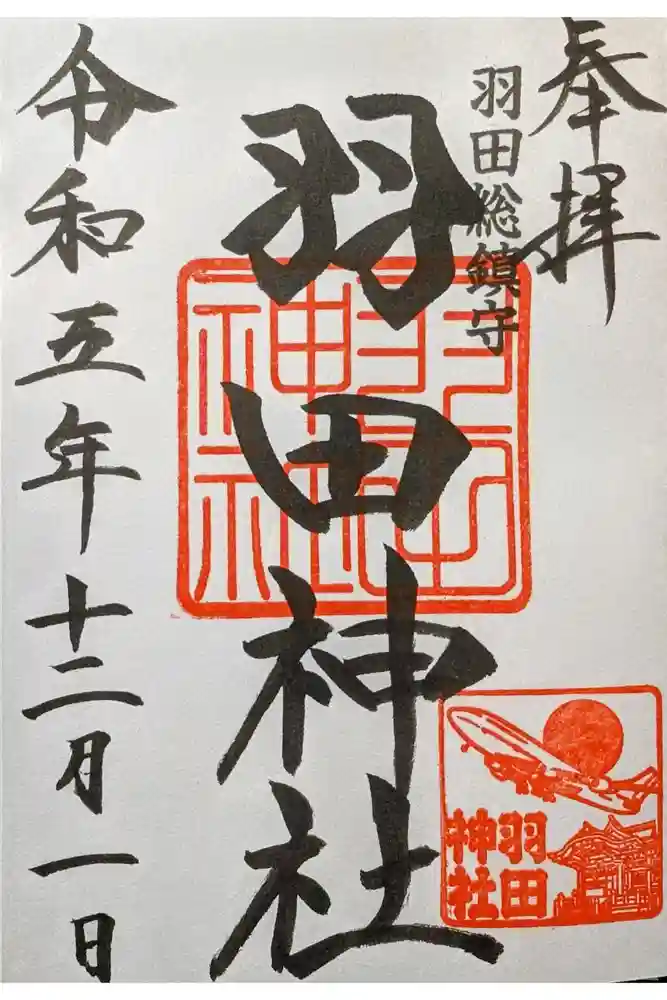 奉拝
羽田総鎮守
羽田神社
羽田神社
令和五年十二月一日
羽田
神社